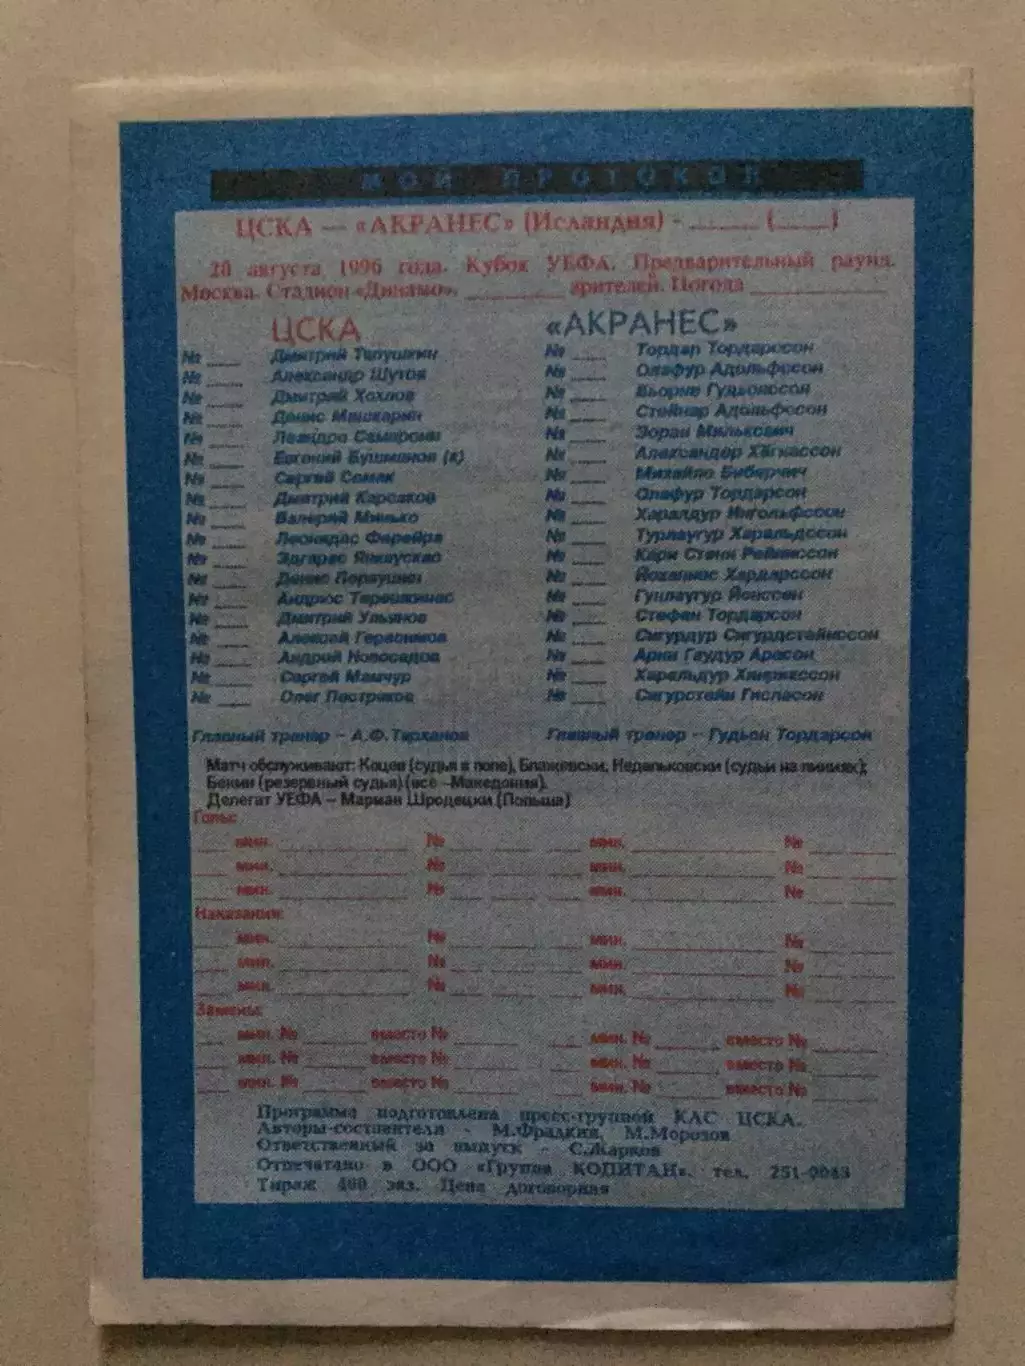 МОЙ ПРОТОКОЛ
ЦСКА — «АКРАНЕС» (Исландия) - ______ (_____)
20 августа 1996 года. Кубок УЕФА. Предварительный раунд.
Москва. Стадион «Динамо». ________ зрителей. Погода ________
ЦСКА «АКРАНЕС»
№ ___ Дмитрий Тяпушкин № ___ Тордар Тордарссон
№ ___ Александр Шутов № ___ Олафур Адольфссон
№ ___ Дмитрий Хохлов № ___ Гудьонссон
№ ___ Денис Машкарин № ___ Стейнар Адольфссон
№ ___ Леандро Самарони № ___ Зоран Милькович
№ ___ Евгений Бушманов (к) № ___ Александер Хёгнассон
№ ___ Сергей Семак № ___ Михайло Биберчич
№ ___ Дмитрий Карсаков № ___ Олафур Тордарсон
№ ___ Валерий Минько № ___ Харалдур Ингольфссон
№ ___ Леонидас Ферейра № ___ Турлаугур Харальдссон
№ ___ Эдгарас Янкаускас № ___ Кари Стейн Рейниссон
№ ___ Денис Первушин № ___ Йоханнес Хардарссон
№ ___ Андрюс Терешкинас № ___ Гунлаугур Йонссон
№ ___ Дмитрий Ульянов № ___ Стефан Тордарсон
№ ___ Алексей Герасимов № ___ Сигурдур Сигурдстейнссон
№ ___ Андрей Новосадов № ___ Арни Гаудур Арасон
№ ___ Сергей Мамчур № ___ Харальдур Хинрикссон
№ ___ Олег Пестряков № ___ Сигурстейн Гисласон
Главный тренер – А.Ф.Тарханов Главный тренер – Гудьон Тордарсон
Матч обслуживают: Коцев (судья в поле), Блажевски, Недельковски (судьи на линиях);
Бекин (резервный судья) (все –Македония).
Делегат УЕФА – Мариан Шродецки (Польша)
Голы:
___ мин. ________ № ___ ___ ___ мин. ________ № ______
___ мин. ________ № ___ ___ ___ мин. ________ № ______
___ мин. ________ № ___ ___ ___ мин. ________ № ______
Наказания:
___ мин. ________ № ___ ___ ___ мин. ________ № ______
___ мин. ________ № ___ ___ ___ мин. ________ № ______
___ мин. ________ № ___ ___ ___ мин. ________ № ______
Замены:
___ мин. № _____ вместо № ___ ___ ___ мин. № _____ вместо № _____
___ мин. № _____ вместо № ___ ___ ___ мин. № _____ вместо № _____
___ мин. № _____ вместо № ___ ___ ___ мин. № _____ вместо № _____
Программа подготовлена пресс-группой КАС ЦСКА.
Авторы-составители - М.Фрадкин, М.Морозов
Ответственный за выпуск - С.Жарков
Отпечатано в ООО «Группа КОПИТАН». тел. 251-0043
Тираж 400 экз. Цена договорная